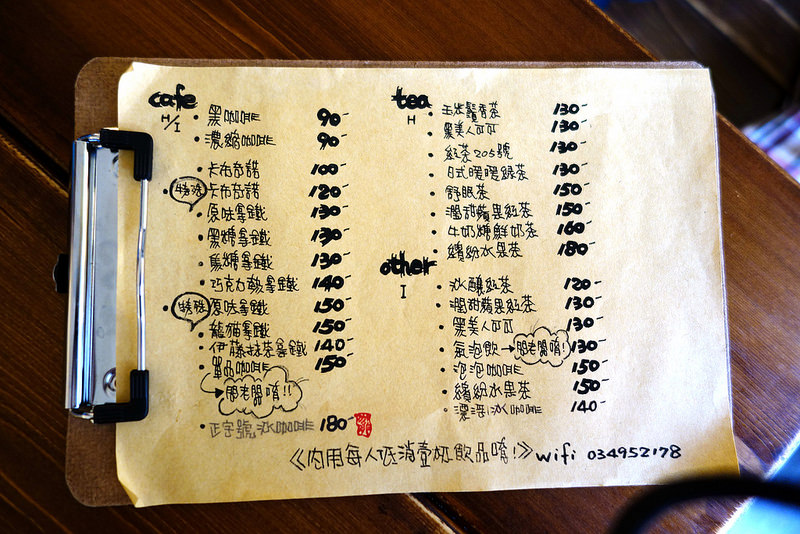 cafe
H/I
黑咖啡 90-
濃縮咖啡 90-
卡布奇諾 100-
特殊 卡布奇諾 120-
原味拿鐵 130-
黑糖拿鐵 130-
焦糖拿鐵 130-
巧克力酸拿鐵 140-
特殊 原味拿鐵 150-
熊貓拿鐵 150-
伊藤抹茶拿鐵 140-
單品咖啡 150-
→問老闆唷!!
正字號冰咖啡 180-
tea
H
玉米鬚香茶 130-
黑美人可可 130-
紅茶205號 130-
日式暖暖綠茶 130-
舒眠茶 150-
潤甜蘋果紅茶 150-
牛奶糖鮮奶茶 160-
繽紛水果茶 180-
other
I
冰釀紅茶 120-
潤甜蘋果紅茶 130-
黑美人可可 130-
氣泡飲→問老闆唷! 130-
泡泡咖啡 150-
繽紛水果茶 150-
冰咖啡 140-
《內用每人低消壹杯飲品唷!》wifi 034952178